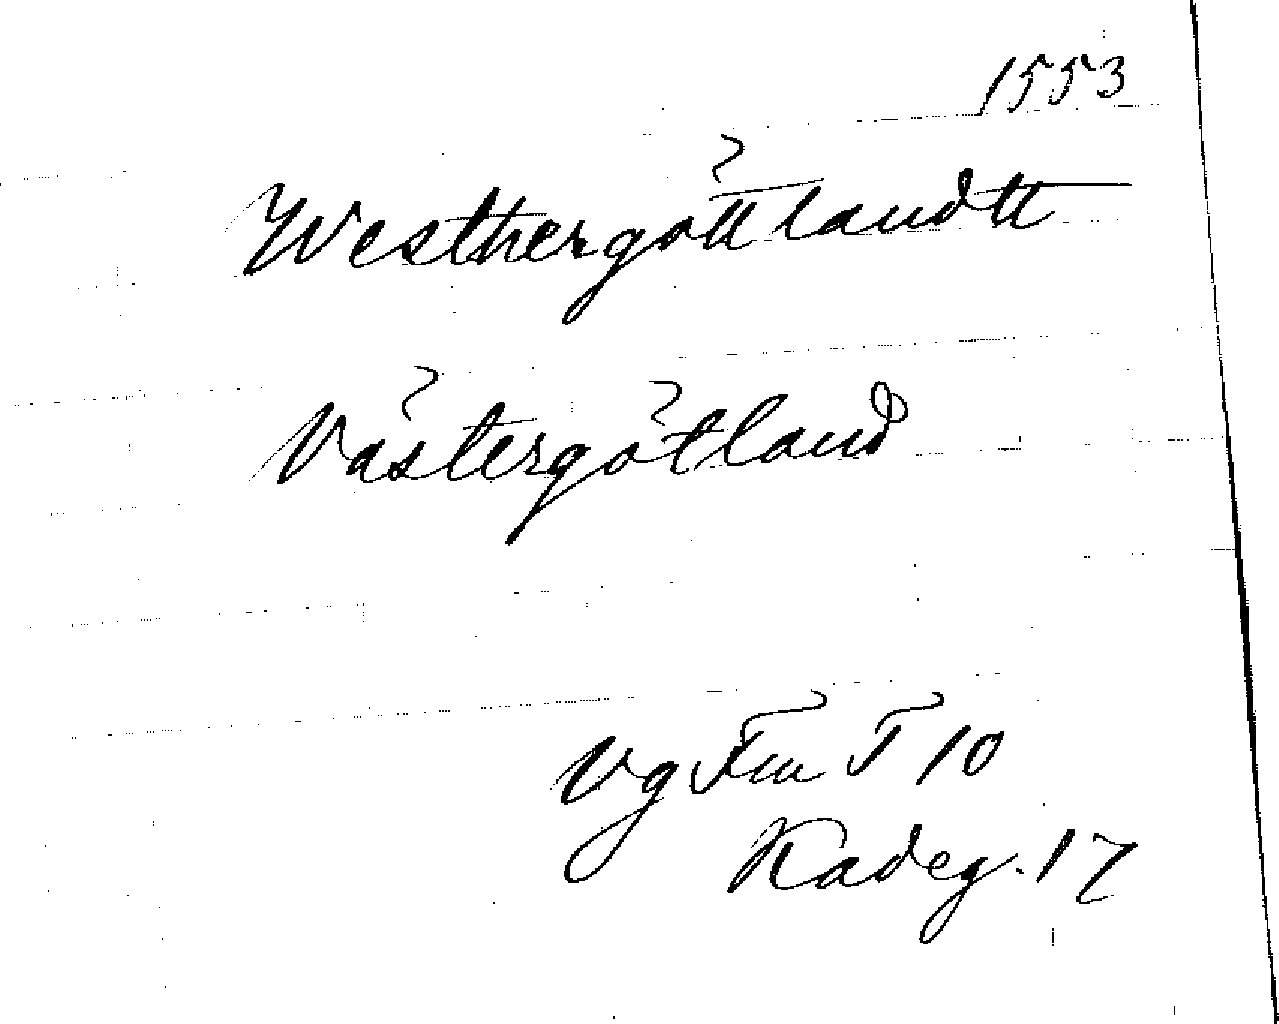 1553
Westhergöttlandtt
Västergötland
Vg Fru T 10
Kadeg. 17